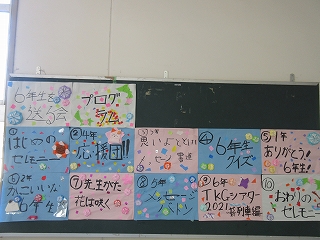 6年生を
送る会
プログ
ラム
①
はじめの
セレモニー
②4年
応援団!!
③3年
思い
④
6年生
クイズ
⑤1年
ありがとう!
6年生!
⑥2年
かっこいいな
6年生
⑦先生がた
花は咲く
⑧5年
メッセージ
バトン
⑨6年
TKGシアター
2021
特別編
⑩
おわりの
セレモニー